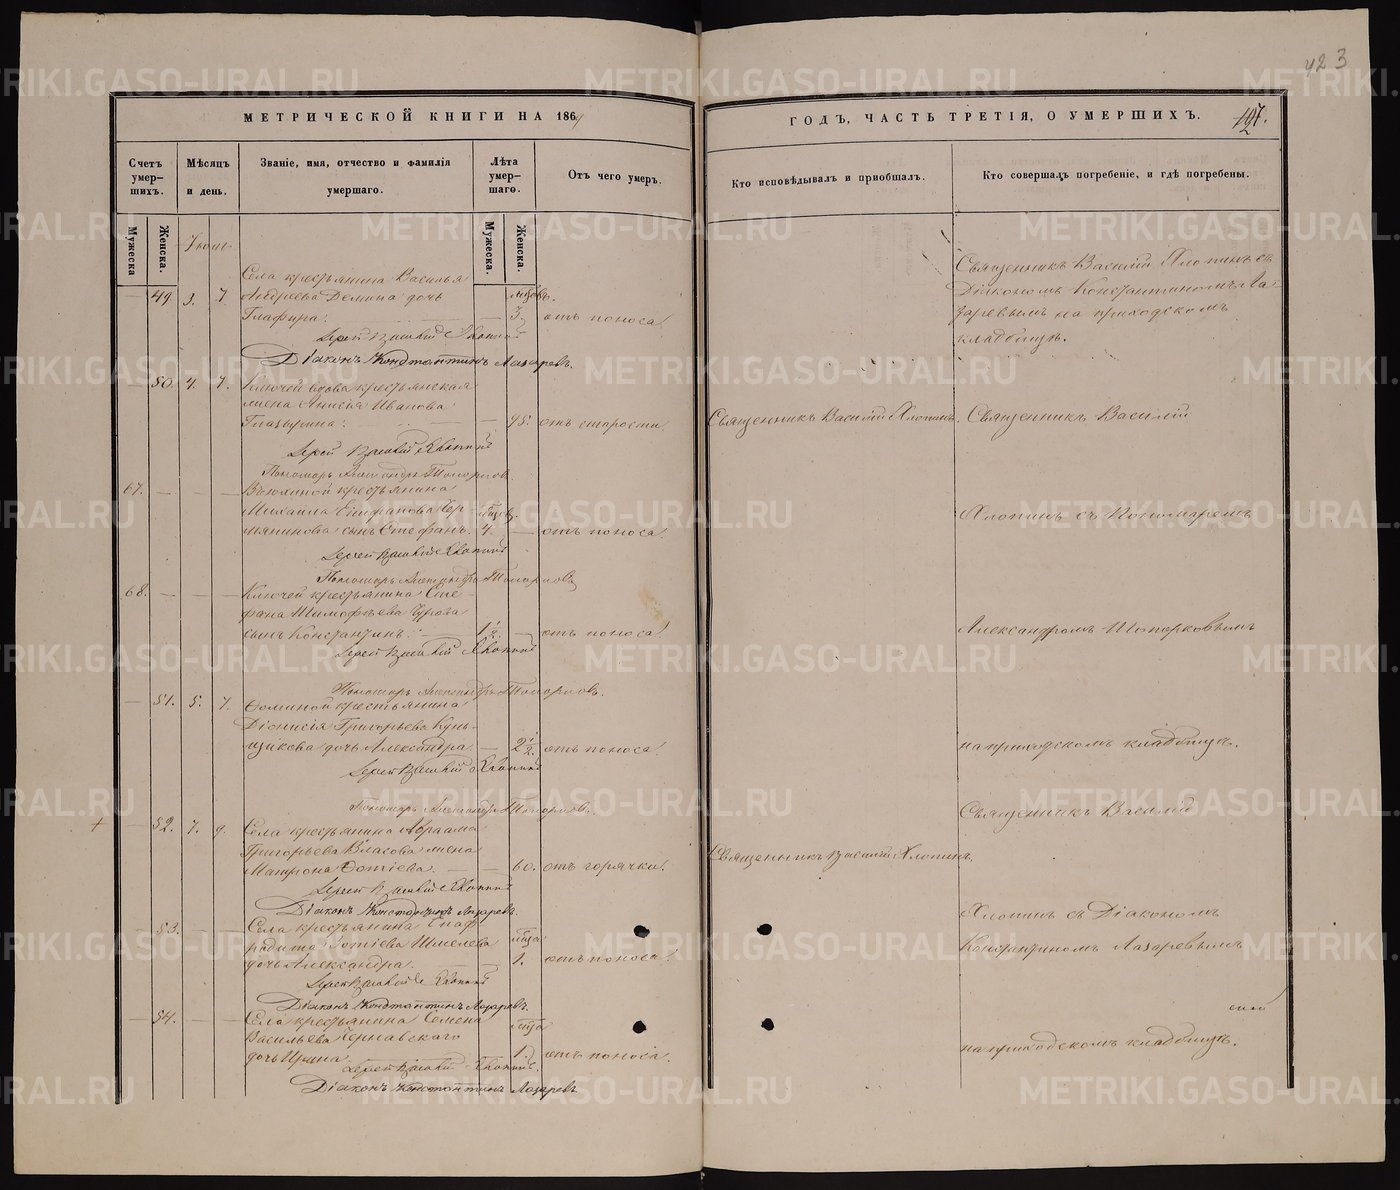 423
МЕТРИЧЕСКОЙ КНИГИ НА 1861
ГОДЪ, ЧАСТЬ ТРЕТІЯ, О УМЕРШИХЪ.
Счетъ умер-шихъ.
Мѣсяцъ и день.
Званіе, имя, отчество и фамилія умершаго.
Лѣта умер-шаго.
Отъ чего умеръ.
Кто исповѣдывалъ и пріобщалъ.
Кто совершалъ погребеніе, и гдѣ погребены.
Мужеска
Женска.
Мужеска.
Женска.
Села крестьянина Василья
49. 3. 7. Андреева Демина дочь мѣсяцовъ.
Глафира. — 3. отъ поноса.
Іерей Василій Хлопинъ
Діаконъ Константинъ Лазаревъ.
Священникъ Василій Хлопинъ съ
Діакономъ Константиномъ Ла-
заревымъ на приходскомъ
кладбищѣ.
50. 4. 7. Ключей вдова крестьянская
жена Анисія Иванова
— 95. отъ старости.
Іерей Василій Хлопинъ
Пономарь Александръ Топорковъ
Священникъ Василій Хлопинъ.
Священникъ Василій
67. — — — крестьянина
Михаила Епифанова
сынъ Стефанъ. 4. — отъ поноса.
Іерей Василій Хлопинъ
Пономарь Александръ Топорковъ
Хлопинъ съ Пономаремъ
68. — — — Ключей крестьянина Сте-
фана Тимофѣева
сынъ Константинъ. — 1 1/2. — отъ поноса.
Іерей Василій Хлопинъ
Пономарь Александръ Топорковъ.
Александромъ Топорковымъ
— 51. 5. 7. крестьянина
Діонисія Григорьева Кунь-
щикова дочь Александра — 2 1/2. отъ поноса.
Іерей Василій Хлопинъ
Пономарь Александръ Топорковъ.
на приходскомъ кладбищѣ.
— 52. 7. 9. Села крестьянина Авраама
Григорьева Власова жена
Матрона Фотіева. — 60. отъ горячки.
Іерей Василій Хлопинъ
Діаконъ Константинъ Лазаревъ.
Священникъ Василій Хлопинъ.
Священникъ Василій
— 53. — — Села крестьянина Епаф-
родита Зотіева Шмелева мѣсяца
дочь Александра. — 1. отъ поноса.
Іерей Василій Хлопинъ
Діаконъ Константинъ Лазаревъ.
Хлопинъ съ Діакономъ
Константиномъ Лазаревымъ
— 54. — — Села крестьянина Семена мѣсяца
Васильева Чернавскаго
дочь Ирина. 1. отъ поноса.
Іерей Василій Хлопинъ.
Діаконъ Константинъ Лазаревъ
на приходскомъ кладбищѣ.
METRIKI.GASO-URAL.RU